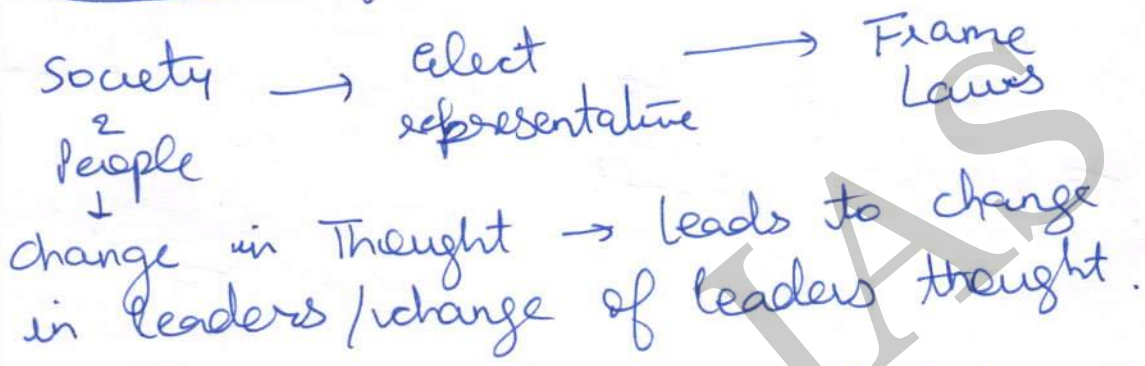 Society → elect → Frame
representative Laws
&
People
↓
change in Thought → leads to change
in leaders / change of leaders thought.
IAS